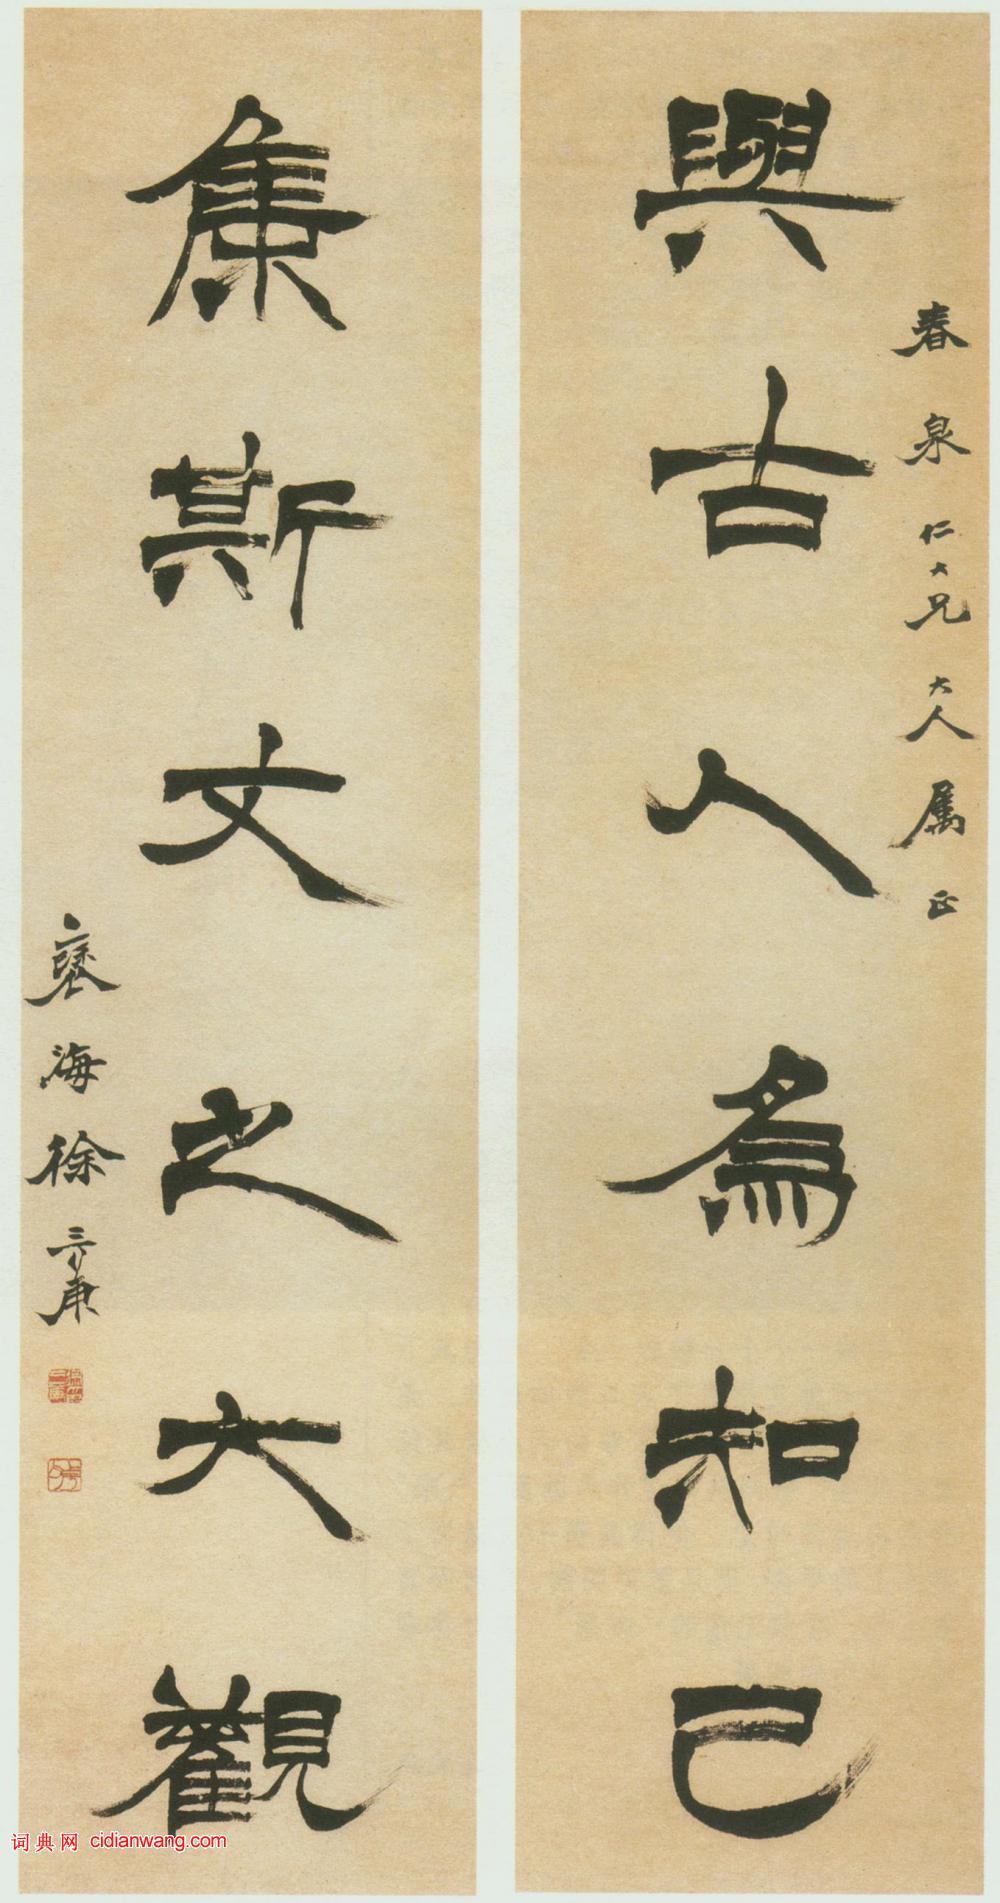 春泉仁大兄大人属正
與古人為知己
集斯文之大觀
褎海徐三庚
词典网 cidianwang.com